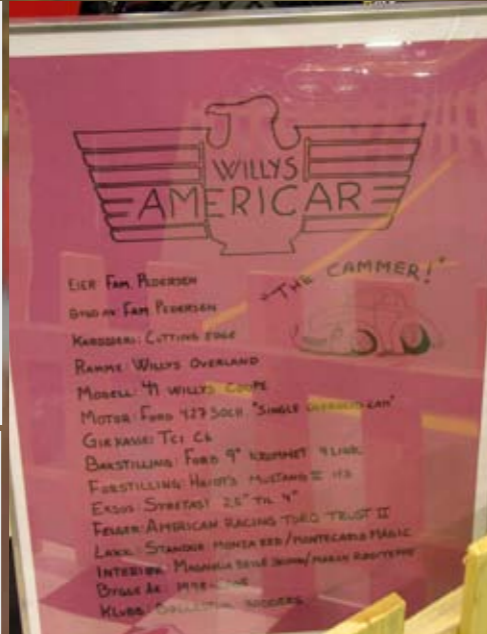 WILLYS
AMERICAR
"THE CAMMER!"
EIER: FAM. PEDERSEN
BYGD AV: FAM PEDERSEN
KAROSSERI: CUTTING EDGE
RAMME: WILLYS OVERLAND
MODELL: '41 WILLYS COUPE
MOTOR: FORD 427 SOCH "SINGLE OVERHEAD CAM"
GIRKASSE: TCI C6
BAKSTILLING: FORD 9" KROMMET 4 LINK
FORSTILLING: HEIDTS MUSTANG II
EKSOS: SYREFAST 2.5" TIL 4"
FELGER: AMERICAN RACING TORQ TRUST II
LAKK: STANDOX MONZA RED/MONTECARLO MAGIC
INTERIØR: MAGNOLIA BEIGE SKINN/
BYGGE ÅR: 1998-
KLUBB: RODDERS